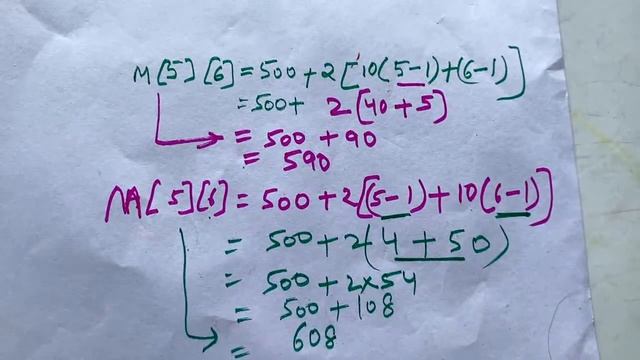 M[5][6] = 500 + 2[10(5-1)+(6-1)]
= 500 + 2[40 + 5]
= 500 + 90
= 590
M[5][6] = 500 + 2[(5-1) + 10(6-1)]
= 500 + 2(4 + 50)
= 500 + 2×54
= 500 + 108
= 608